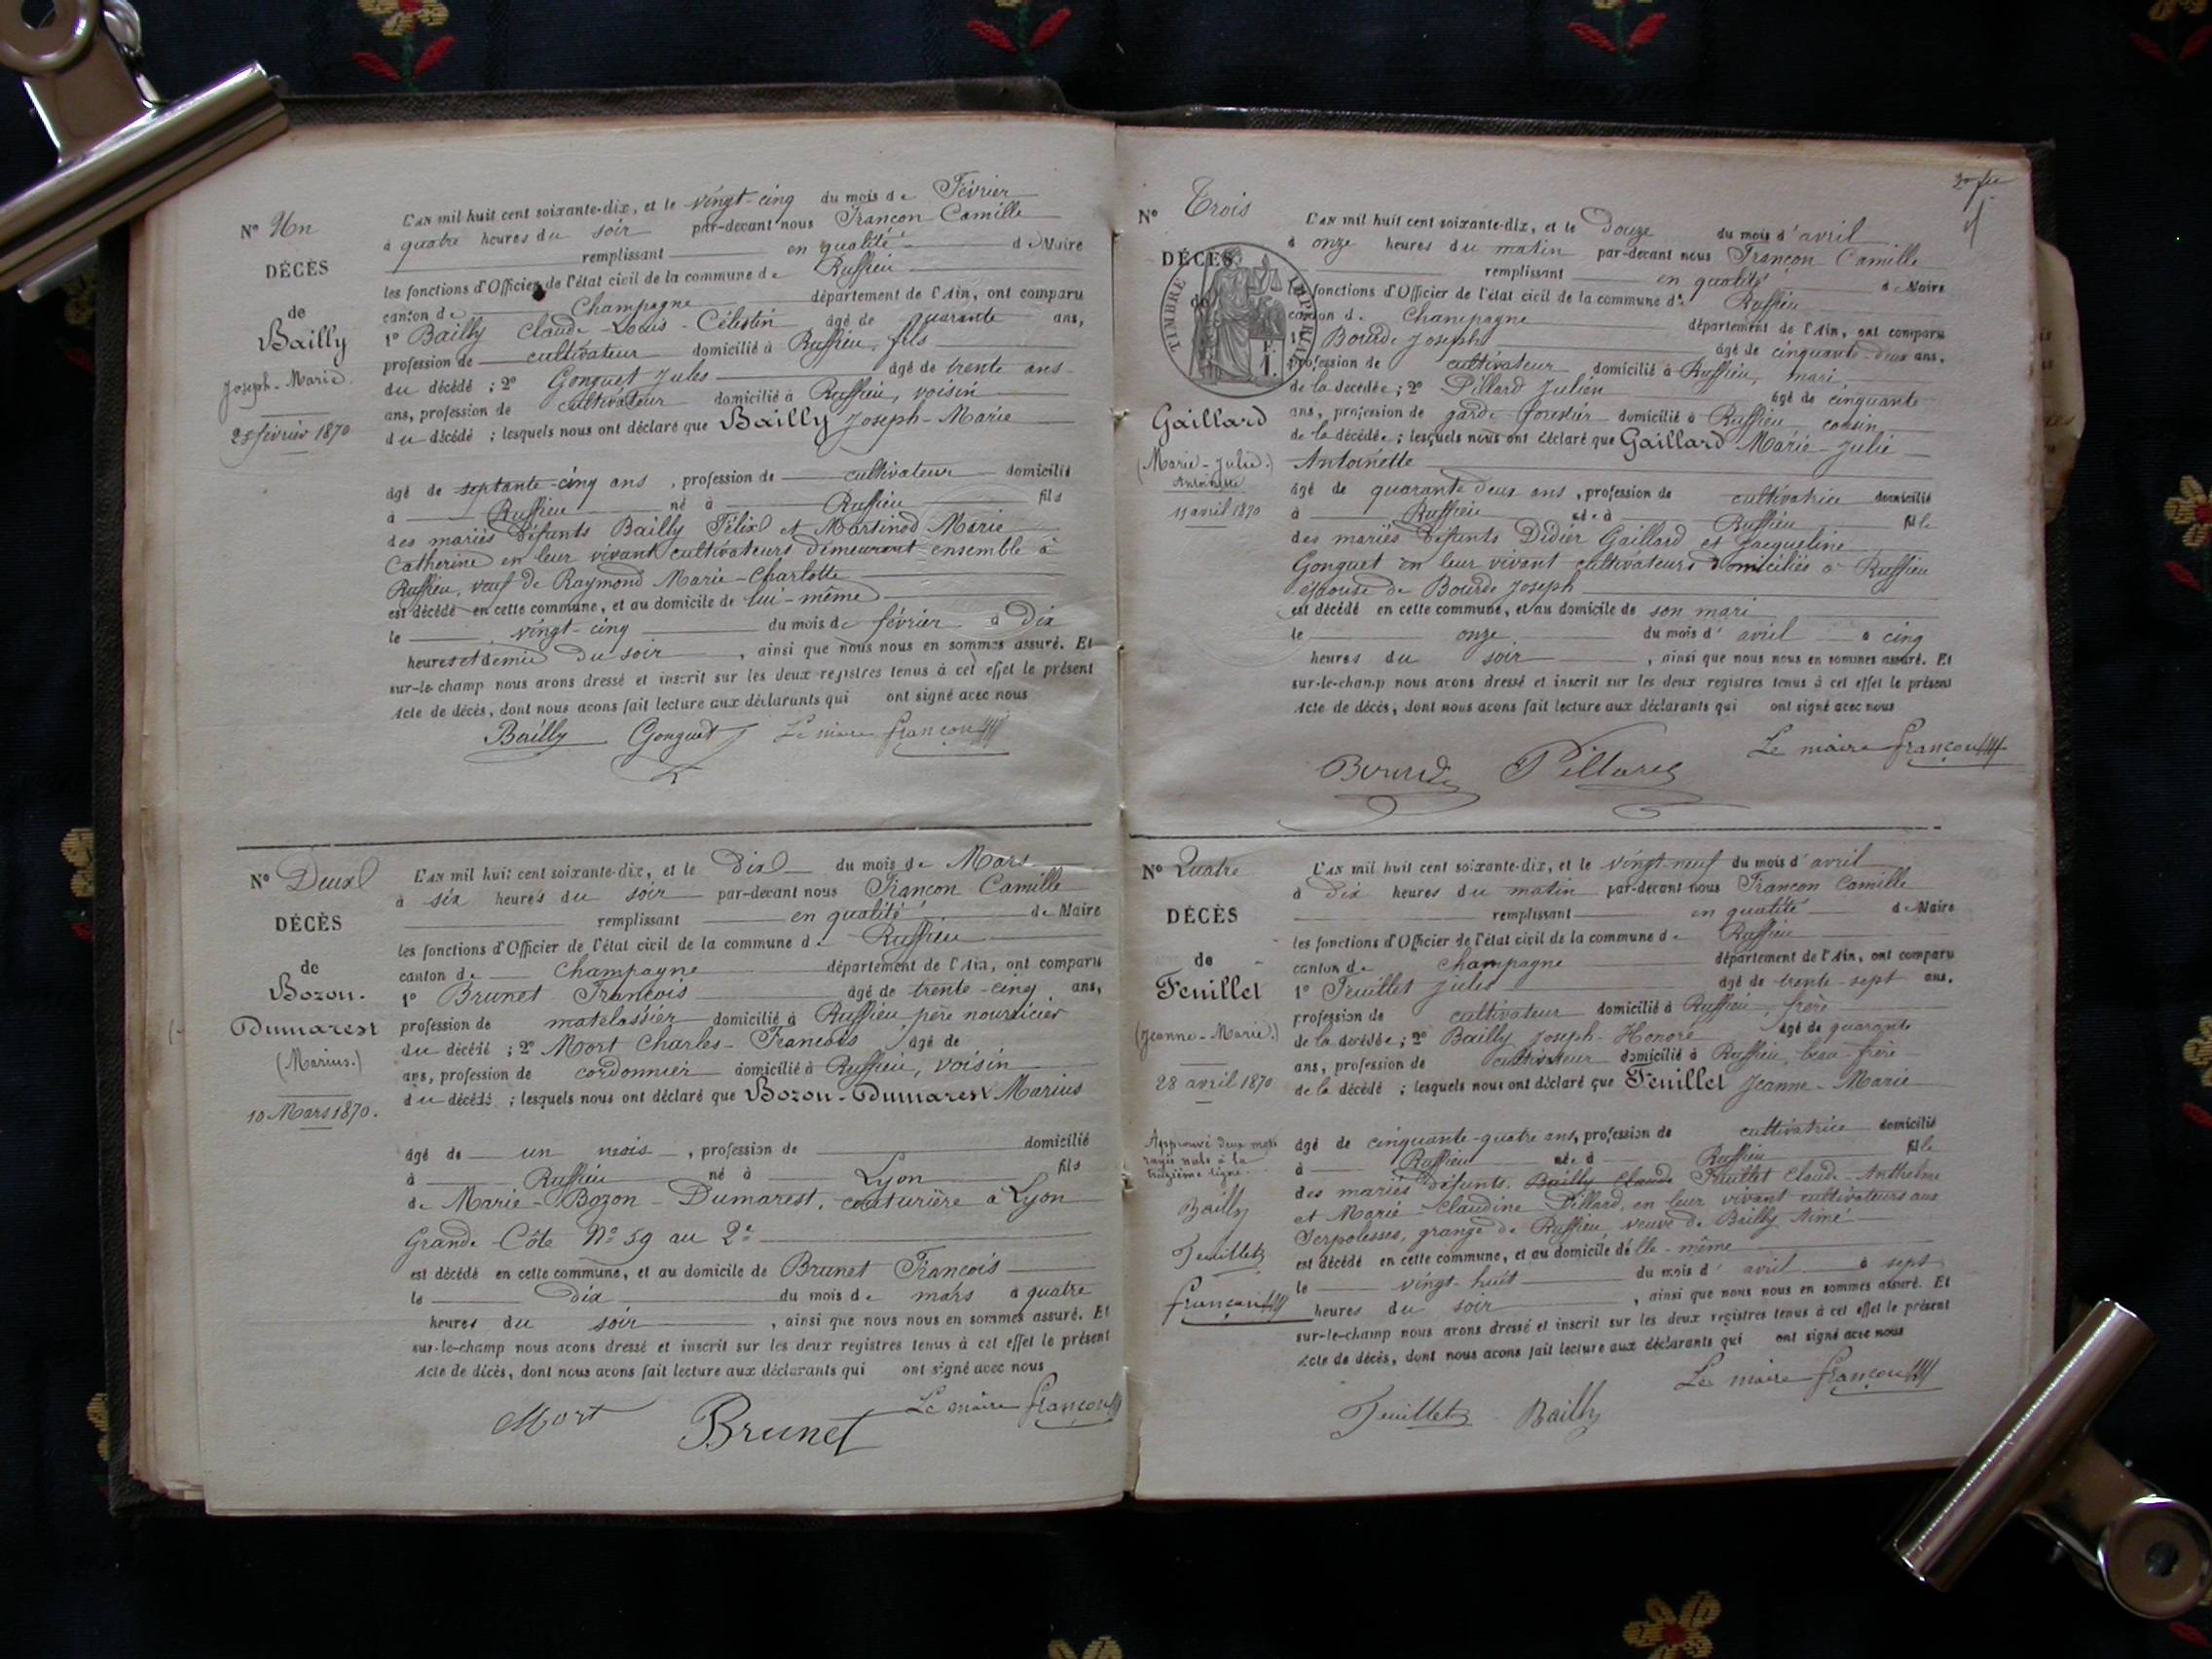 N° Un
DÉCÈS
de
Bailly
Joseph-Marie
25 février 1870
L'AN mil huit cent soixante-dix, et le vingt-cinq du mois de Février
à quatre heures du soir par-devant nous Françon Camille
remplissant en qualité de Maire
les fonctions d'Officier de l'état civil de la commune de Ruffieu
canton de Champagne département de l'Ain, ont comparu
1° Bailly Claude-Louis-Célestin âgé de quarante ans,
profession de cultivateur domicilié à Ruffieu, fils
du décédé ; 2° Gonguet Jules âgé de trente ans
ans, profession de cultivateur domicilié à Ruffieu, voisin
du décédé ; lesquels nous ont déclaré que Bailly Joseph-Marie
âgé de septante-cinq ans, profession de cultivateur domicilié
à Ruffieu né à Ruffieu fils
des mariés défunts Bailly Félix et Martinod Marie
Catherine en leur vivant cultivateurs demeurant ensemble à
Ruffieu, veuf de Raymond Marie-Charlotte
est décédé en cette commune, et au domicile de lui-même
le vingt-cinq du mois de février à dix
heures et demie du soir, ainsi que nous nous en sommes assuré. Et
sur-le-champ nous avons dressé et inscrit sur les deux registres tenus à cet effet le présent
Acte de décès, dont nous avons fait lecture aux déclarants qui ont signé avec nous
Bailly Gonguet Le maire Françon
N° Deux
DÉCÈS
de
Bozon-
Dumarest
(Marius.)
10 Mars 1870.
L'AN mil huit cent soixante-dix, et le dix du mois de Mars
à six heures du soir par-devant nous Françon Camille
remplissant en qualité de Maire
les fonctions d'Officier de l'état civil de la commune de Ruffieu
canton de Champagne département de l'Ain, ont comparu
1° Brunet François âgé de trente-cinq ans,
profession de matelassier domicilié à Ruffieu, père nourricier
du décédé ; 2° Mort Charles-François âgé de
ans, profession de cordonnier domicilié à Ruffieu, voisin
du décédé ; lesquels nous ont déclaré que Bozon-Dumarest Marius
âgé de un mois, profession de domicilié
à Ruffieu né à Lyon fils
de Marie-Bozon-Dumarest, couturière à Lyon
Grande Côte N° 59 au 2e
est décédé en cette commune, et au domicile de Brunet François
le dix du mois de mars à quatre
heures du soir, ainsi que nous nous en sommes assuré. Et
sur-le-champ nous avons dressé et inscrit sur les deux registres tenus à cet effet le présent
Acte de décès, dont nous avons fait lecture aux déclarants qui ont signé avec nous
Mort Brunet Le maire Françon
N° Trois
DÉCÈS
de
TIMBRE IMPERIAL
Gaillard
(Marie-Julie.)
Antoinette
11 avril 1870
L'AN mil huit cent soixante-dix, et le Douze du mois d'avril
à onze heures du matin par-devant nous Françon Camille
remplissant en qualité de Maire
les fonctions d'Officier de l'état civil de la commune de Ruffieu
canton de Champagne département de l'Ain, ont comparu
1° Bourde Joseph âgé de cinquante-deux ans,
profession de cultivateur domicilié à Ruffieu, mari
de la décédée ; 2° Pillard Julien âgé de cinquante
ans, profession de garde-forestier domicilié à Ruffieu cousin
de la décédée ; lesquels nous ont déclaré que Gaillard Marie-Julie
Antoinette
âgé de quarante deux ans, profession de cultivatrice domicilié
à Ruffieu née à Ruffieu fille
des mariés défunts Didier Gaillard et Jacqueline
Gonguet en leur vivant cultivateurs domiciliés à Ruffieu
épouse de Bourde Joseph
est décédé en cette commune, et au domicile de son mari
le onze du mois d'avril à cinq
heures du soir, ainsi que nous nous en sommes assuré. Et
sur-le-champ nous avons dressé et inscrit sur les deux registres tenus à cet effet le présent
Acte de décès, dont nous avons fait lecture aux déclarants qui ont signé avec nous
Le maire Françon
Bourde Pillard
N° Quatre
DÉCÈS
de
Feuillet
(Jeanne-Marie.)
28 avril 1870
Approuvé deux mots
rayés nuls à la
treizième ligne.
Bailly
Feuillet
Françon
L'AN mil huit cent soixante-dix, et le vingt-neuf du mois d'avril
à dix heures du matin par-devant nous Françon Camille
remplissant en qualité de Maire
les fonctions d'Officier de l'état civil de la commune de Ruffieu
canton de Champagne département de l'Ain, ont comparu
1° Feuillet Jules âgé de trente-sept ans,
profession de cultivateur domicilié à Ruffieu, frère
de la décédée ; 2° Bailly Joseph-Honoré âgé de quarante
ans, profession de cultivateur domicilié à Ruffieu, beau-frère
de la décédé ; lesquels nous ont déclaré que Feuillet Jeanne-Marie
âgé de cinquante-quatre ans, profession de cultivatrice domicilié
à Ruffieu née à Ruffieu fille
des mariés défunts Bailly Claude Feuillet Claude-Anthelme
et Marie-Claudine Pillard, en leur vivant cultivateurs aux
Serpolesses, grange de Ruffieu, veuve de Bailly Aimé
est décédé en cette commune, et au domicile d'elle-même
le vingt-huit du mois d'avril à sept
heures du soir, ainsi que nous nous en sommes assuré. Et
sur-le-champ nous avons dressé et inscrit sur les deux registres tenus à cet effet le présent
Acte de décès, dont nous avons fait lecture aux déclarants qui ont signé avec nous
Le maire Françon
Feuillet Bailly